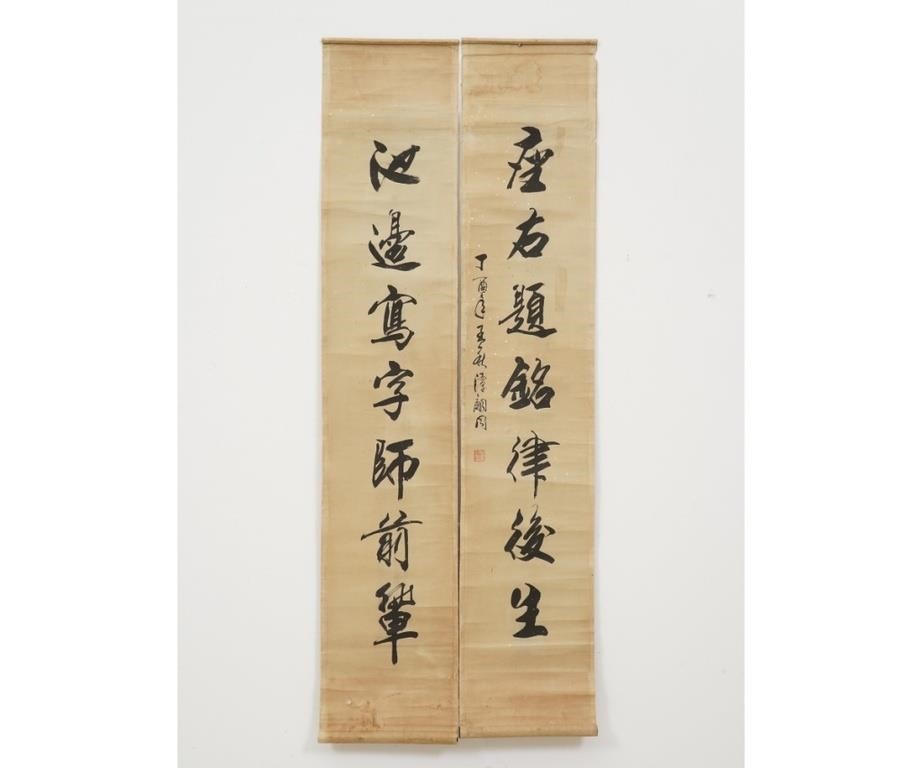 座右題銘律後生
丁酉年秋譚嗣同
池邊寫字師前輩